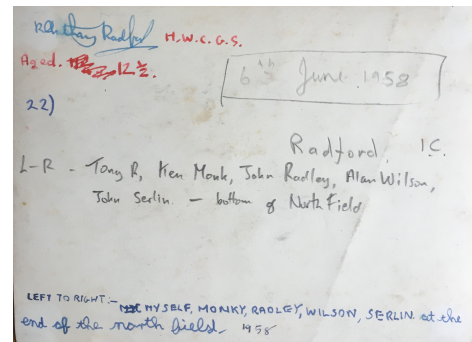 R Anthony Radford H.W.C.G.S.
Aged. 12½.
6th June 1958
22)
Radford. 1C.
L-R - Tony R, Ken Monk, John Radley, Alan Wilson,
John Serlin - bottom of North Field
LEFT TO RIGHT:- MYSELF, MONKY, RADLEY, WILSON, SERLIN at the
end of the north field. 1958